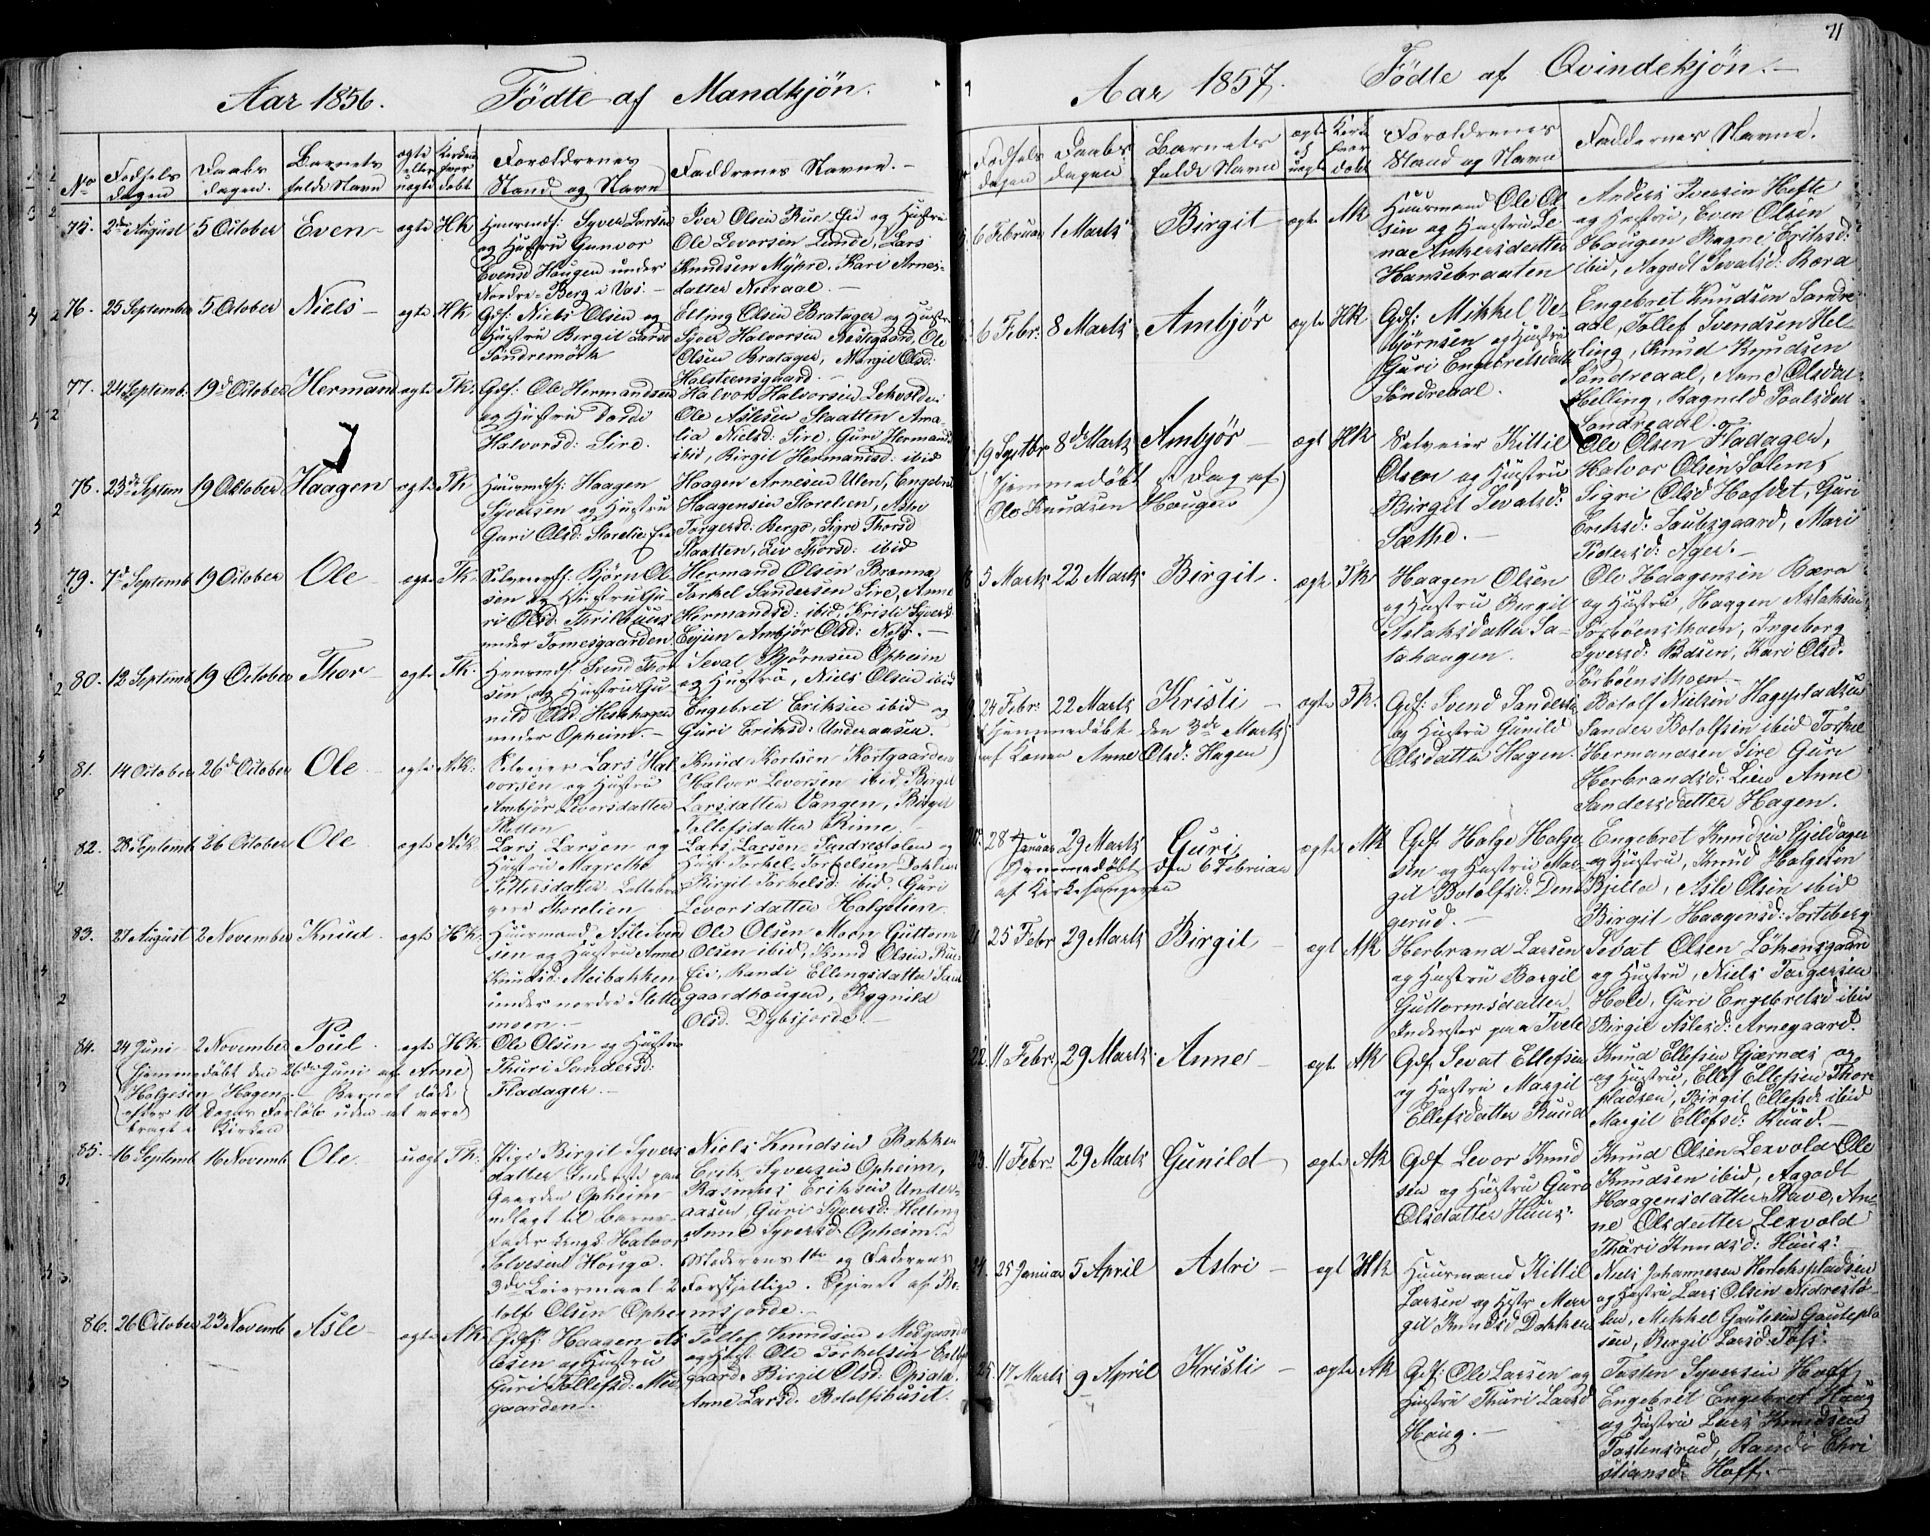 71
Aar 1856. Fødte af Mandkjøn.
No
Fødsels dagen
Daabs dagen.
Barnets fulde Navn
ægte eller uægte
Forældrenes Stand og Navne
Faddernes Navne.
75. 2den August 5 October Even ægte Hk.
Huusmdf: Syver Larsen
og Hustru Gunvor
Evensd Haugen under
Nordre-Berg i Vas.
Iver Olsen Rue, Ei og Hustru
Ole Levorsen Lunde, Lars
Knudsen Myhre, Kari Arnes-
datter Nedraal.
76. 25 September 5 October Niels ægte Hk.
Gdf: Niels Olsen og
Hustru Birgit Larsd
Søndremørk
Elling Olsen Bratager og Hustru
Syver Halvorsen Ole
Olsen Bratager, Margit Olsd:
Halsteensgaard.
77. 24 Septemb: 19de October Hermand ægte Tk.
Gdf: Ole Hermandsen
og Hustru
Halvorsd: Sire.
Halvor Halvorsen
Ole Aslesen Slaatten Ama-
lia Nielsd: Sire, Guri Hermandsd
ibid, Birgit Hermandsd: ibid
78. 23de Septem 19 Oktober Haagen ægte Tk
Huusmdf: Haagen
Syversen og Hustru
Guri Olsd: Storelie
Haagen Arnesen Ulen, Engebret
Haagensen Storelien, Astri
Torgersd: Berge, Sigri Thorsd
Slaatten, Liv Thorsd: ibid
79. 7de Septemb 19 October Ole ægte Tk.
Bjørn Ol-
sen og Hustru Gu-
ri Olsd:
under Tomesgaarden
Hermand Olsen Brenna
Torkel Sandersen Sire, Anne
Hermandsd: ibid, Kristi Syversd:
Ambjør Olsd: Næss.
80. 12 Septemb 19 October Thor ægte Tk.
Huusmdf: Svend Thor-
sen og Hustru Gu-
nild Olsd Heslehagen
under Opheim.
Seval Bjørnsen Opheim
og Hustru, Niels Olsen ibid
Engebret Eriksen ibid og
Guri Eriksd: Underaasen.
81. 14 October 26de October Ole ægte Ak.
Selveier Lars Hal-
vorsen og Hustru
Ambjør Levorsdatter
Knud Karlsen Kortgaarden
Halvor Levorsen ibid, Birgit
Larsdatter Vangen, Birgit
Tollefsdatter Rime.
82. 28 Septemb 26 October Ole ægte Ak.
Lars Larsen og
Hustru Magrethe
Storelien
Lars Larsen Sundrestølen og
Hust: Torkel Torkelsen Dokken
Birgit Torkelsd: ibid. Guri
Levorsdatter Helgelien
83. 27 August 2 November Knud ægte Hk.
Huusmand Asle Iver-
sen og Hustru Anne
Knudsd: Meibakken
under nordre Slette-
moen.
Ole Olsen Moen Guttorm
Olsen ibid, Knud Olsen Rue-
Ei, Randi Ellingsdatter Sand-
gaardhougen, Ragnild
Olsd. Dybsjorde.
84. 24 Juni 2 November Poul ægte Hk
Ole Olsen og Hustru
Thuri Sandersd:
Fladager.
(Hjemmedøbt den 26de Juni af Arne
Helgesen Hagen. Barnet døde
efter 10 Dages Forløb uden at være
bragt i Kirken)
85. 16 Septemb 16 Novemb. Ole uægt Tk.
Pige Birgit Syvers-
datter Inderste paa
Gaarden Opheim
udlagt til Barne-
fader Ungk Halvor
Solvesen Houge.
3die Leiermaal
Niels Knudsen Bakken
Erik Syversen Opheim,
Rasmus Eriksen Under-
aasen, Guri Syversd:
Anne Syversd: Opheim.
Moderens 1ste og Faderens
2 Forskjellige. Opgivet af Bo-
tolf Olsen Opheimsjorde.
86. 26 October 23 Novemb Asle ægte Ak.
Gdf: Haagen As-
lesen og Hustru
Guri Tollefsd: Mid-
gaarden.
Tollef Knudsen Midgaarden
og Hust Ole Torkelsen
gaard. Birgit Olsd: Opsata.
Anne Larsd. Botolfshuset.
Aar 1857. Fødte af Qvindekjøn.
Fødsels dagen
Daabs dagen
Barnets fulde Navne
Forældrenes Stand og Navne
Faddernes Navne.
6 Februar 1 Marts Birgit ægte Ak
Huusmand Ole Ol-
sen og Hustru Le-
na Ankersdatter
Hansebraaten
Anders Iversen Hefte
og Hustru, Even Olsen
Haugen Ragne Eriksd:
ibid, Aagodt Sevatsd: Bæra
6 Febr: 8 Marts Ambjør ægte Hk
Gdf: Mikkel Ve-
bjørnsen og Hustru
Guri Engebretsdatt
Søndreaal.
Engebret Knudsen Søndre-
aal, Tollef Svendsen Hel-
ling, Knud Knudsen
Søndreaal, Anne Olsdat
Helling, Ragnild Poulsdat
Søndreaal.
19 Septbr 8de Marts Ambjør ægt Hk
(Hjemmedøbt Dag af
Ole Knudsen Haugen)
Selveier Kittil
Olsen og Hustru
Birgit Sevatsd:
Sæthe.
Ole Olsen Fladager,
Halvor Olsen Salem,
Sigri Olsd Hafdet, Guri
Eriksd: Mari
Pedersd: Ager.
5 Marts 22 Marts Birgit. ægte Tk
Haagen Olsen
og Hustru Birgit
Aslaksdatter Sa-
tahaugen.
Ole Haagensen Bæra
og Hustru, Haagen Aslaksen
Sørbøensmoen, Ingeborg
Syversd: Kari Olsd.
Sørbøensmoen
24 Febr: 22 Marts Kristi ægte Tk.
(Hjemmedøbt den 3de Marts
af Konen Anne Olsd: Hagen)
Gdf: Svend Sandersen
og Hustru Gunild
Olsdatter Hagen.
Botolf Nielsen Hagepladsen
Sander Botolfsen ibid Torkel
Hermandsen Sire Guri
Herbrandsd: Lien Anne
Sandersdatter Hagen.
28 Januar 29 Marts Guri ægte Ak
Hjemmedøbt den 6 Februar
af Kirkesangeren
Gdf Helge Helge-
sen og Hustru Mar-
git Botolfsd: Dene-
gerud.
Engebret Knudsen Gjeldager
og Hustru, Knud Helgesen
Asle Olsen ibid
Birgit Haagensd: Sorteberg
25 Febr 29 Marts Birgit ægt Ak
Herbrand Larsen
og Hustru Borgil
Guttormsdatter,
Inderster paa Tvete
Sevat Olsen Løkensgaard
og Hustru, Niels Torgersen
Hole, Guri Engebretsd ibid
Birgit Aslesd: Arnegaard.
22. 11 Febr: 29 Marts Anne ægt Ak
Gdf Sevat Ellefsen
og Hustru Margit
Ellefsdatter Ruud
Knud Ellefsen Gjærnes og
og Hustru, Ellef Ellefsen Thore-
pladsen, Birgit Ellefsd: ibid
Margit Ellefsd: Ruud.
23. 11 Febr: 29 Marts Gunild ægte Ak
Gdf Levor Knud-
sen og Hustru Guro
Olsdatter Huus.
Knud Olsen Lexvold Ole
Knudsen ibid, Aagodt
Haagensdatter Stave, An-
ne Olsdatter Lexvold
Thuri Knudsd: Huus.
24. 25 Januar 5 April Astri ægt Hk
Huusmand Kittil
Larsen og Hustr Mar-
git Knudsd Dokken
Niels Johannesen
og Hustru Lars Olsen Nedrestø-
len, Mikkel Gautepla-
sen, Birgit Larsd:
25. 17 Marts 9 April Kristi ægte Ak
Gdf: Ole Larsen og
Hustru Thuri Larsd
Haug.
Tosten Syversen Hoff
Engebret Engebret Haug
og Hustru Lars Knudsen
Tostensrud, Randi Chri-
stiansd: Hoff.